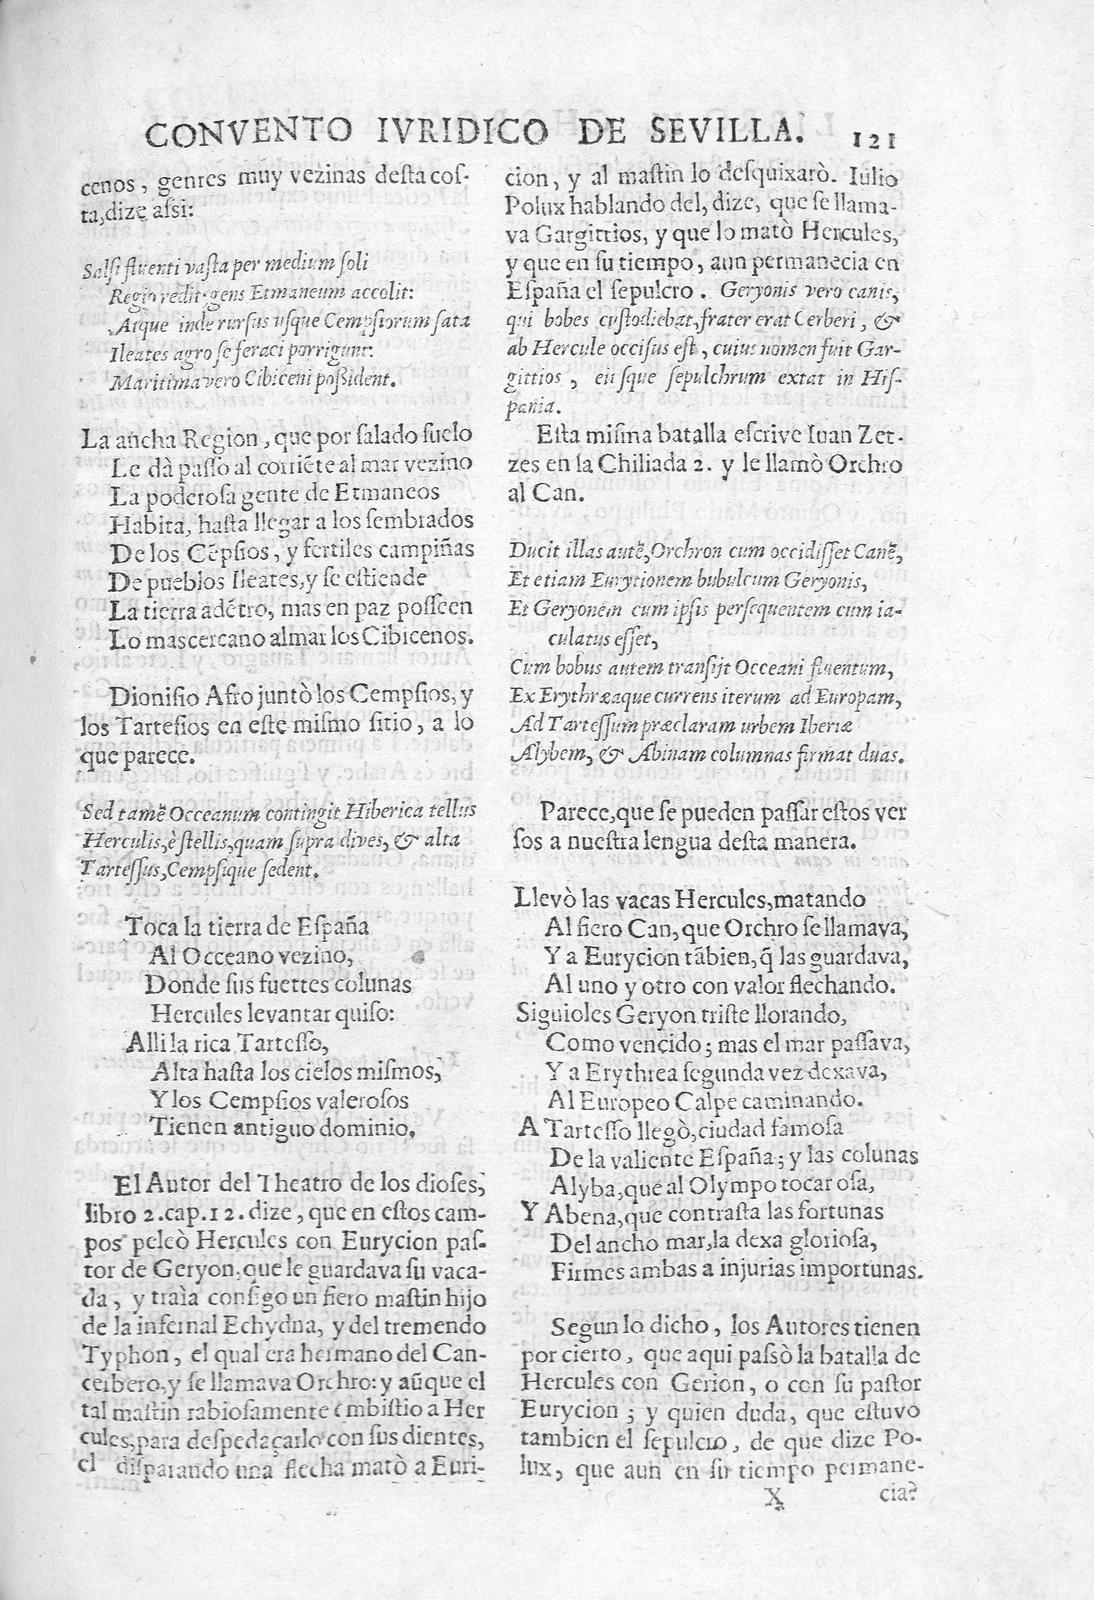 CONVENTO IVRIDICO DE SEVILLA. 121
cenos, gentes muy vezinas desta cos-
ta, dize assi:
Salsi fluenti vasta per medium soli
Regio redit: gens Etmaneum accolit:
Atque inde rursus usque Cempsiorum sata
Ileates agro se feraci porrigunt:
Maritima vero Cibiceni possident.
La ancha Region, que por salado suelo
Le dà passo al corriẽte al mar vezino
La poderosa gente de Etmaneos
Habita, hasta llegar a los sembrados
De los Cẽpsios, y fertiles campiñas
De pueblos Ileates, y se estiende
La tierra adẽtro, mas en paz posseen
Lo mascercano al mar los Cibicenos.
Dionisio Afro juntò los Cempsios, y
los Tartesios en este mismo sitio, a lo
que parece.
Sed tamẽ Occeanum contingit Hiberica tellus
Herculis, è stellis, quam supra dives, & alta
Tartessus, Cempsique sedent.
Toca la tierra de España
Al Occeano vezino,
Donde sus fuertes colunas
Hercules levantar quiso:
Alli la rica Tartesso,
Alta hasta los cielos mismos,
Y los Cempsios valerosos
Tienen antiguo dominio,
El Autor del Theatro de los dioses,
libro 2. cap. 12. dize, que en estos cam-
pos peleò Hercules con Eurycion pas-
tor de Geryon, que le guardava su vaca-
da, y traìa consigo un fiero mastin hijo
de la infernal Echydna, y del tremendo
Typhon, el qual era hermano del Can-
cerbero, y se llamava Orchro: y aũque el
tal mastin rabiosamente embistio a Her
cules, para despedaçarlo con sus dientes,
el disparando una flecha matò a Euri-
cion, y al mastin lo desquixarò. Iulio
Polux hablando del, dize, que se llama-
va Gargittios, y que lo matò Hercules,
y que en su tiempo, aun permanecia en
España el sepulcro. Geryonis vero canis,
qui bobes custodiebat, frater erat Cerberi, &
ab Hercule occisus est, cuius nomen fuit Gar-
gittios, eiusque sepulchrum extat in His-
pania.
Esta misma batalla escrive Iuan Zet-
zes en la Chiliada 2. y le llamò Orchro
al Can.
Ducit illas autẽ, Orchron cum occidisset Canẽ,
Et etiam Eurytionem bubulcum Geryonis,
Et Geryonem cum ipsis persequentem cum ia-
culatus esset,
Cum bobus autem transijt Occeani fluentum,
Ex Erythræaque currens iterum ad Europam,
Ad Tartessum præclaram urbem Iberiæ
Alybem, & Abinam columnas firmat duas.
Parece, que se pueden passar estos ver
sos a nuestra lengua desta manera.
Llevò las vacas Hercules, matando
Al fiero Can, que Orchro se llamava,
Y a Eurycion tãbien, q̃ las guardava,
Al uno y otro con valor flechando.
Siguioles Geryon triste llorando,
Como vencido; mas el mar passava,
Y a Erythrea segunda vez dexava,
Al Europeo Calpe caminando.
A Tartesso llegò, ciudad famosa
De la valiente España; y las colunas
Alyba, que al Olympo tocar osa,
Y Abena, que contrasta las fortunas
Del ancho mar, la dexa gloriosa,
Firmes ambas a injurias importunas.
Segun lo dicho, los Autores tienen
por cierto, que aqui passò la batalla de
Hercules con Gerion, o con su pastor
Eurycion; y quien duda, que estuvo
tambien el sepulcro, de que dize Po-
lux, que aun en su tiempo permane-
X cia?